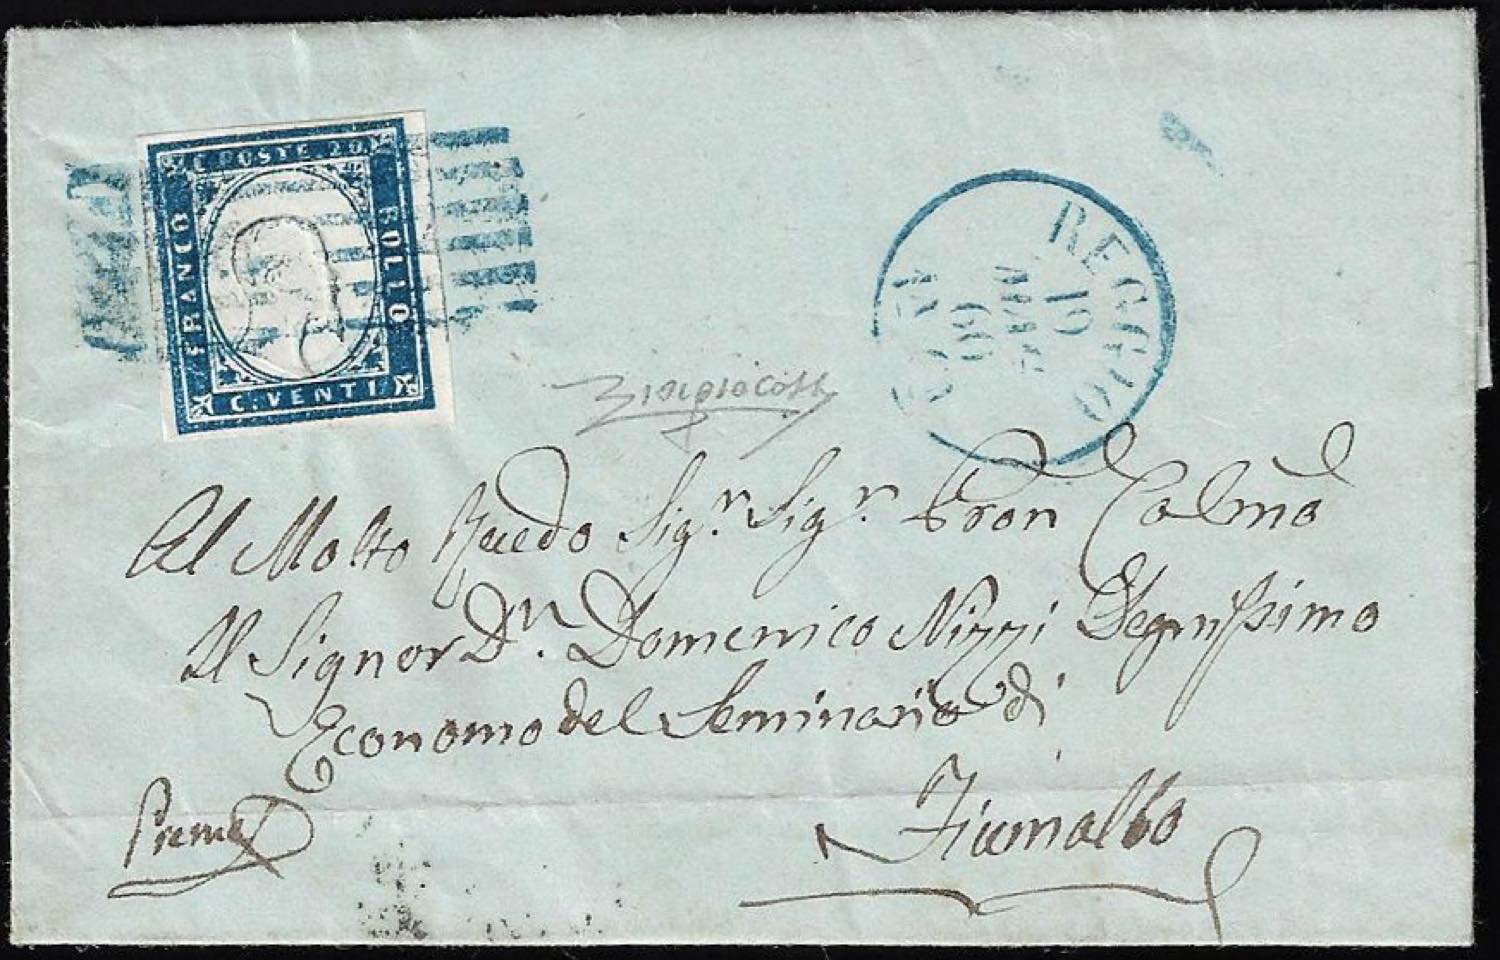 C. POSTE 20
FRANCO
BOLLO
C. VENTI
REGGIO
19
60
Al Molto Revedo Sigr. Sigr. Pron Colmo
Il Signor Dn. Domenico Nizzi Degnissimo
Economo del Seminario di
Fiumalbo
Preme